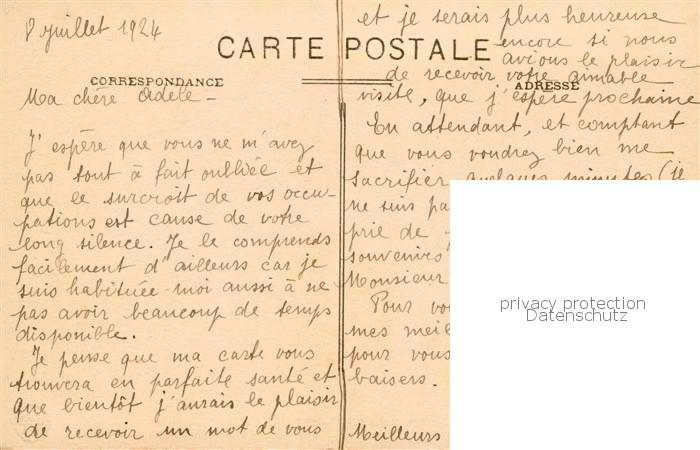 8 juillet 1924
CARTE POSTALE
CORRESPONDANCE
ADRESSE
Ma chère Adèle –
J'espère que vous ne m'avez
pas tout à fait oubliée et
que le surcroit de vos occu-
pations est cause de votre
long silence. Je le comprends
facilement d'ailleurs car je
suis habituée moi aussi à ne
pas avoir beaucoup de temps
disponible.
Je pense que ma carte vous
trouvera en parfaite santé et
que bientôt j'aurais le plaisir
de recevoir un mot de vous
et je serais plus heureuse
encore si nous
avions le plaisir
de recevoir votre aimable
visite, que j'espère prochaine
En attendant, et comptant
que vous voudrez bien me
sacrifier quelques minutes (je
ne suis pa
prie de
souvenirs
Monsieur
Pour vo
mes meil
pour vous
baisers.
Meilleurs
privacy protection
Datenschutz